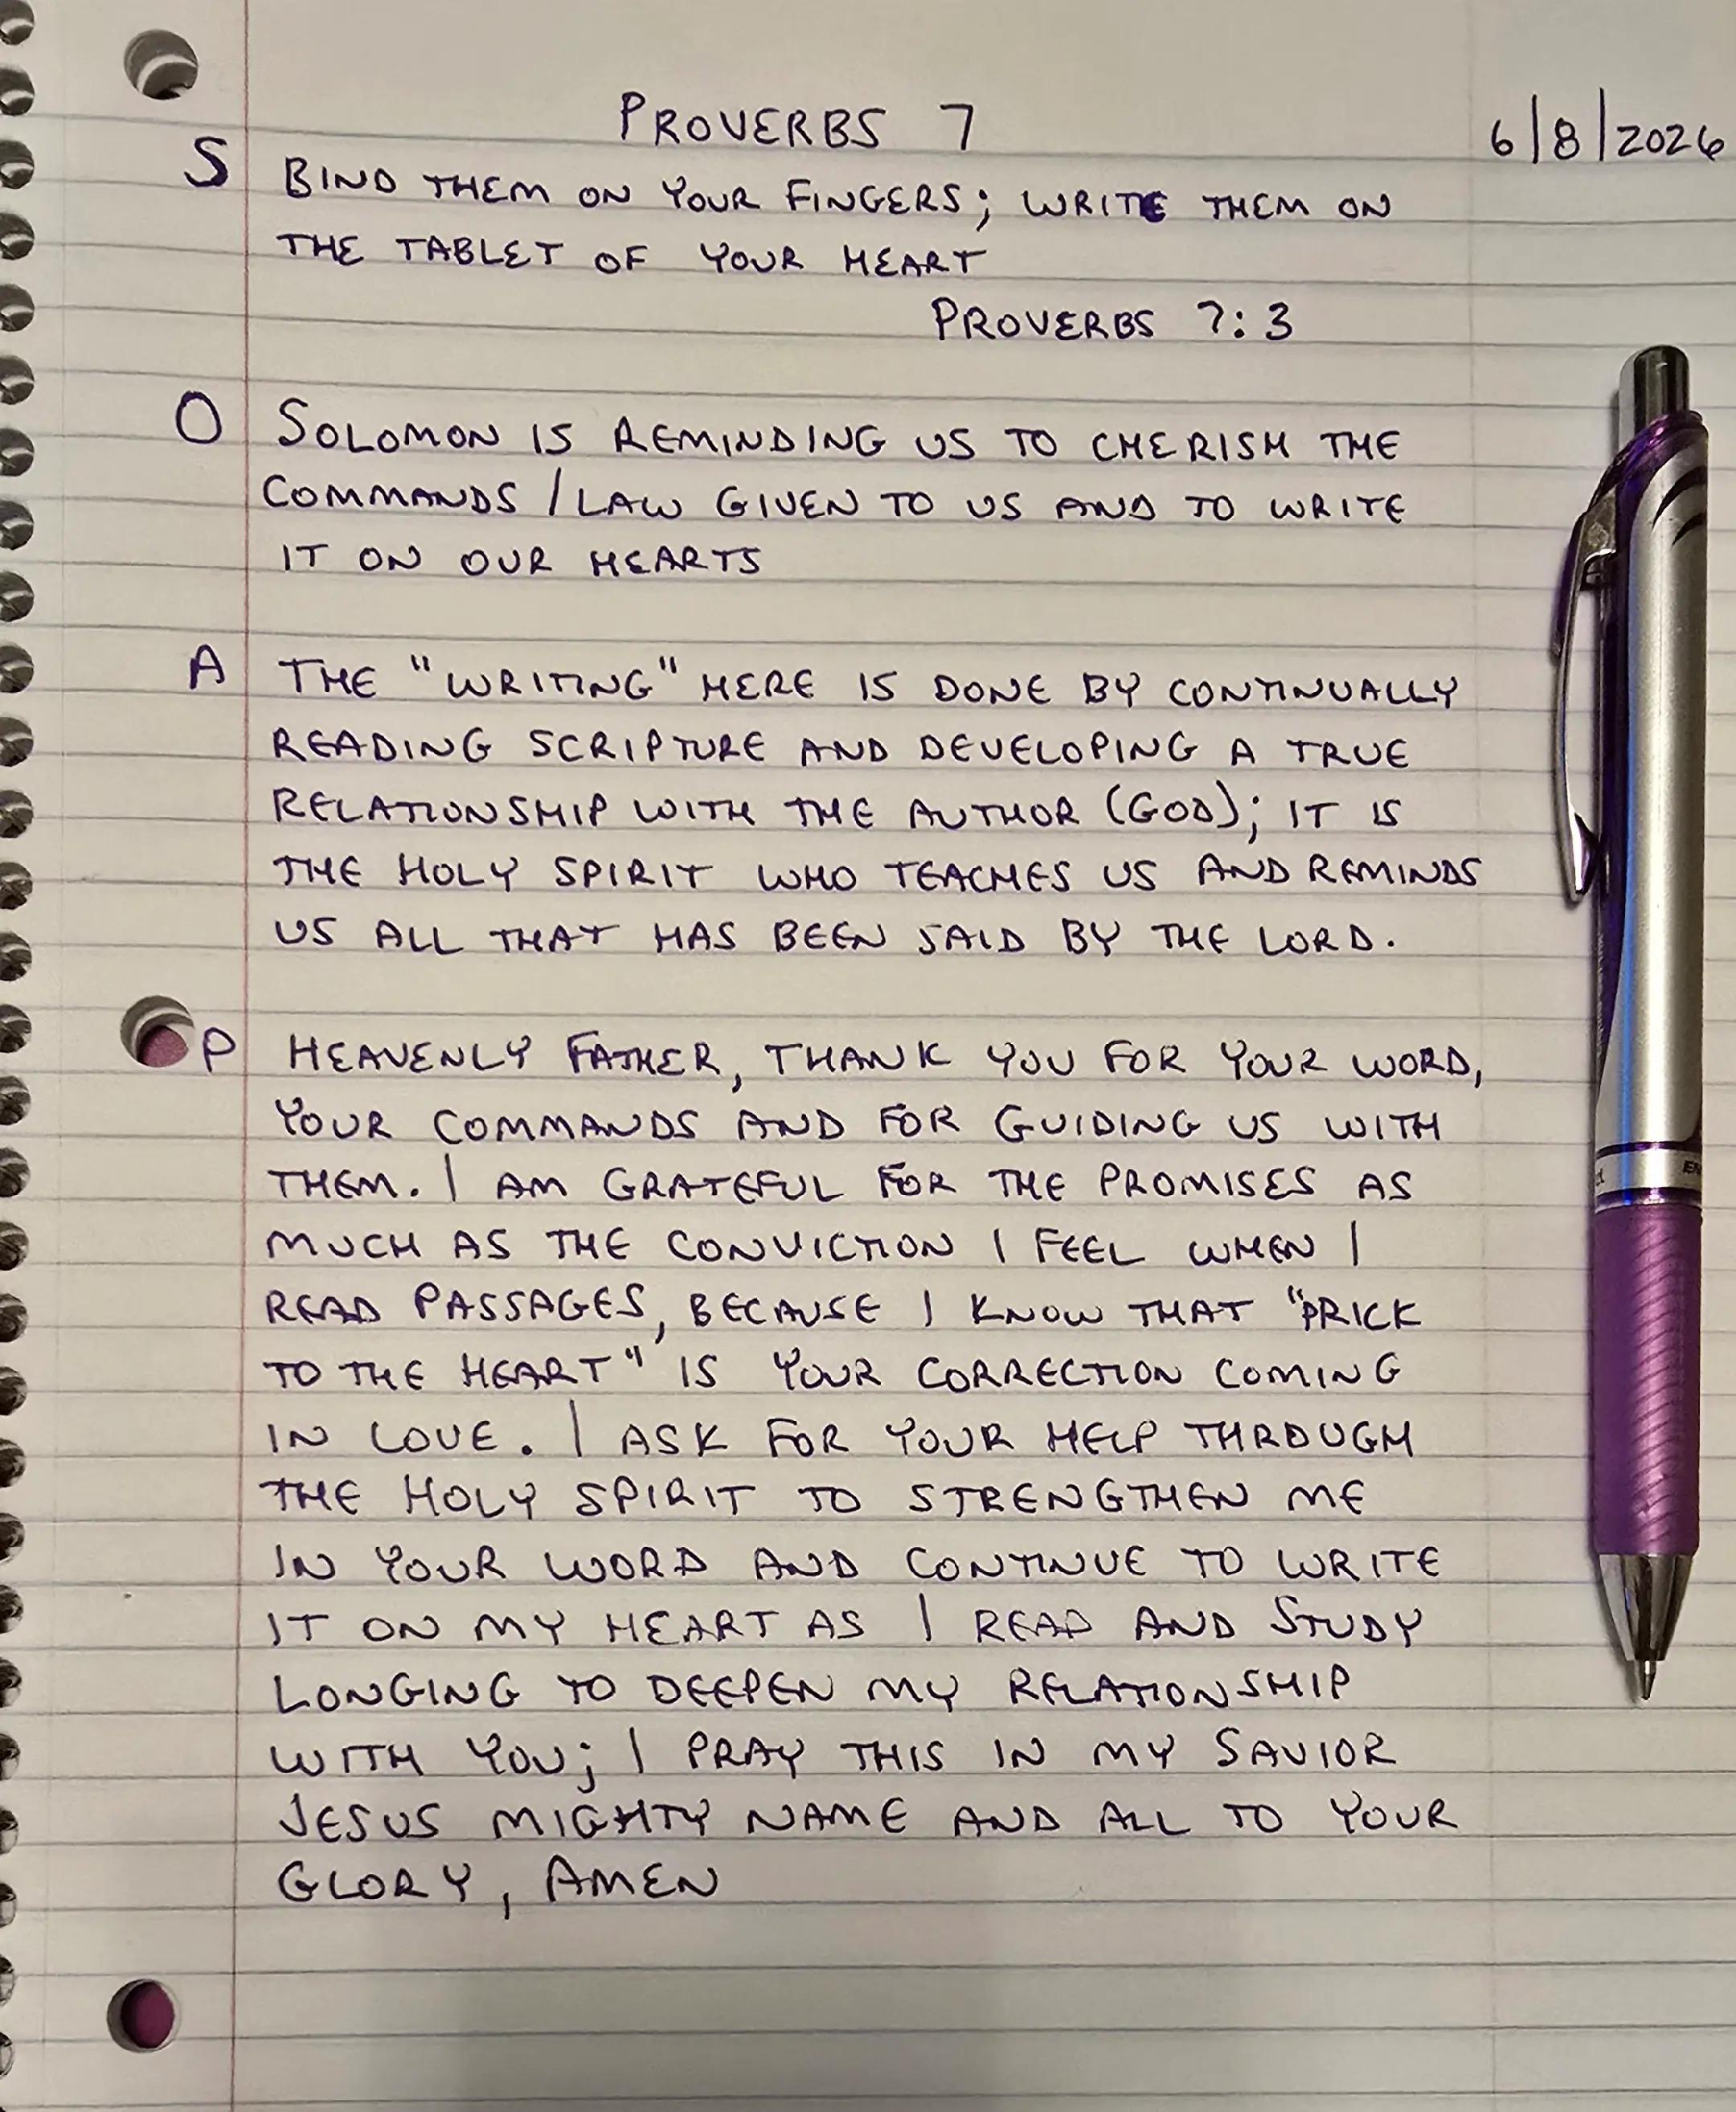 PROVERBS 7
6/8/2026
S BIND THEM ON YOUR FINGERS; WRITE THEM ON
THE TABLET OF YOUR HEART
PROVERBS 7:3
O SOLOMON IS REMINDING US TO CHERISH THE
COMMANDS / LAW GIVEN TO US AND TO WRITE
IT ON OUR HEARTS
A THE "WRITING" HERE IS DONE BY CONTINUALLY
READING SCRIPTURE AND DEVELOPING A TRUE
RELATIONSHIP WITH THE AUTHOR (GOD); IT IS
THE HOLY SPIRIT WHO TEACHES US AND REMINDS
US ALL THAT HAS BEEN SAID BY THE LORD.
P HEAVENLY FATHER, THANK YOU FOR YOUR WORD,
YOUR COMMANDS AND FOR GUIDING US WITH
THEM. I AM GRATEFUL FOR THE PROMISES AS
MUCH AS THE CONVICTION I FEEL WHEN I
READ PASSAGES, BECAUSE I KNOW THAT "PRICK
TO THE HEART" IS YOUR CORRECTION COMING
IN LOVE. I ASK FOR YOUR HELP THROUGH
THE HOLY SPIRIT TO STRENGTHEN ME
IN YOUR WORD AND CONTINUE TO WRITE
IT ON MY HEART AS I READ AND STUDY
LONGING TO DEEPEN MY RELATIONSHIP
WITH YOU; I PRAY THIS IN MY SAVIOR
JESUS MIGHTY NAME AND ALL TO YOUR
GLORY, AMEN